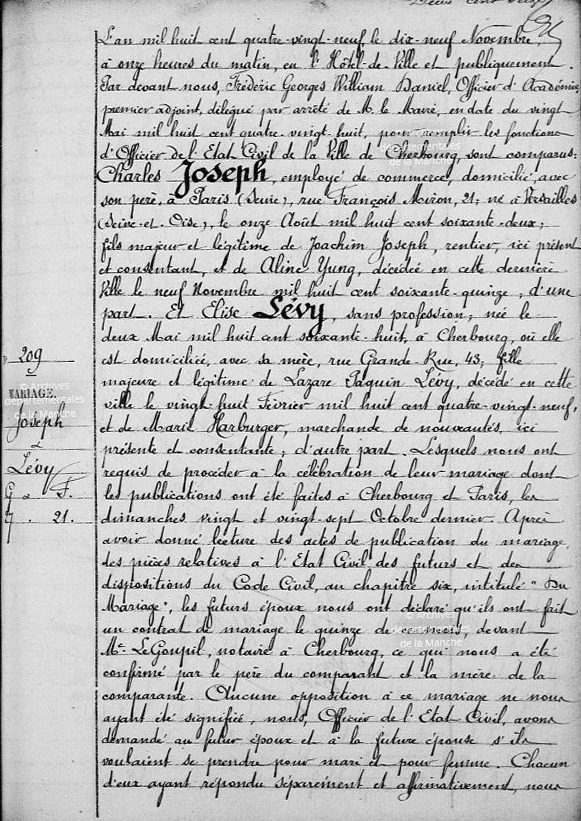 Deux cent vingt
L'an mil huit cent quatre-vingt-neuf le dix-neuf Novembre,
à onze heures du matin, en l'Hôtel-de-Ville et publiquement.
Par devant nous, Frédéric Georges William Daniel, Officier d'Académie,
premier adjoint, délégué par arrêté de M. le Maire, en date du vingt
Mai mil huit cent quatre-vingt-huit, pour remplir les fonctions
d'Officier de l'Etat Civil de la Ville de Cherbourg, sont comparus:
Charles Joseph, employé de commerce, domicilié, avec
son père, à Paris (Seine), rue François Miron, 21; né à Versailles
(Seine-et-Oise), le onze Août mil huit cent soixante-deux;
fils majeur et légitime de Joachim Joseph, rentier, ici présent
et consentant, et de Aline Yung, décédée en cette dernière
Ville le neuf Novembre mil huit cent soixante-quinze, d'une
part. Et Elise Lévy, sans profession, née le
deux Mai mil huit cent soixante-huit, à Cherbourg, où elle
est domiciliée, avec sa mère, rue Grande-Rue, 43; fille
majeure et légitime de Lazare Paquin Lévy, décédé en cette
ville le vingt-huit Février mil huit cent quatre-vingt-neuf,
et de Marie Harburger, marchande de nouveautés, ici
présente et consentante; d'autre part. Lesquels nous ont
requis de procéder à la célébration de leur mariage dont
les publications ont été faites à Cherbourg et Paris, les
dimanches vingt et vingt-sept Octobre dernier. Après
avoir donné lecture des actes de publication du mariage,
des pièces relatives à l'Etat Civil des futurs et des
dispositions du Code Civil, au chapitre six, intitulé "Du
Mariage", les futurs époux nous ont déclaré qu'ils ont fait
un contrat de mariage le quinze de ce mois, devant
Me LeGoupil, notaire à Cherbourg, ce qui nous a été
confirmé par le père du comparant et la mère de la
comparante. Aucune opposition à ce mariage ne nous
ayant été signifiée, nous, Officier de l'Etat Civil, avons
demandé au futur époux et à la future épouse s'ils
voulaient se prendre pour mari et pour femme. Chacun
d'eux ayant répondu séparément et affirmativement, nous
209
MARIAGE.
Joseph
&
Lévy
G. & F.
21.
© Archives
départementales
de la Manche